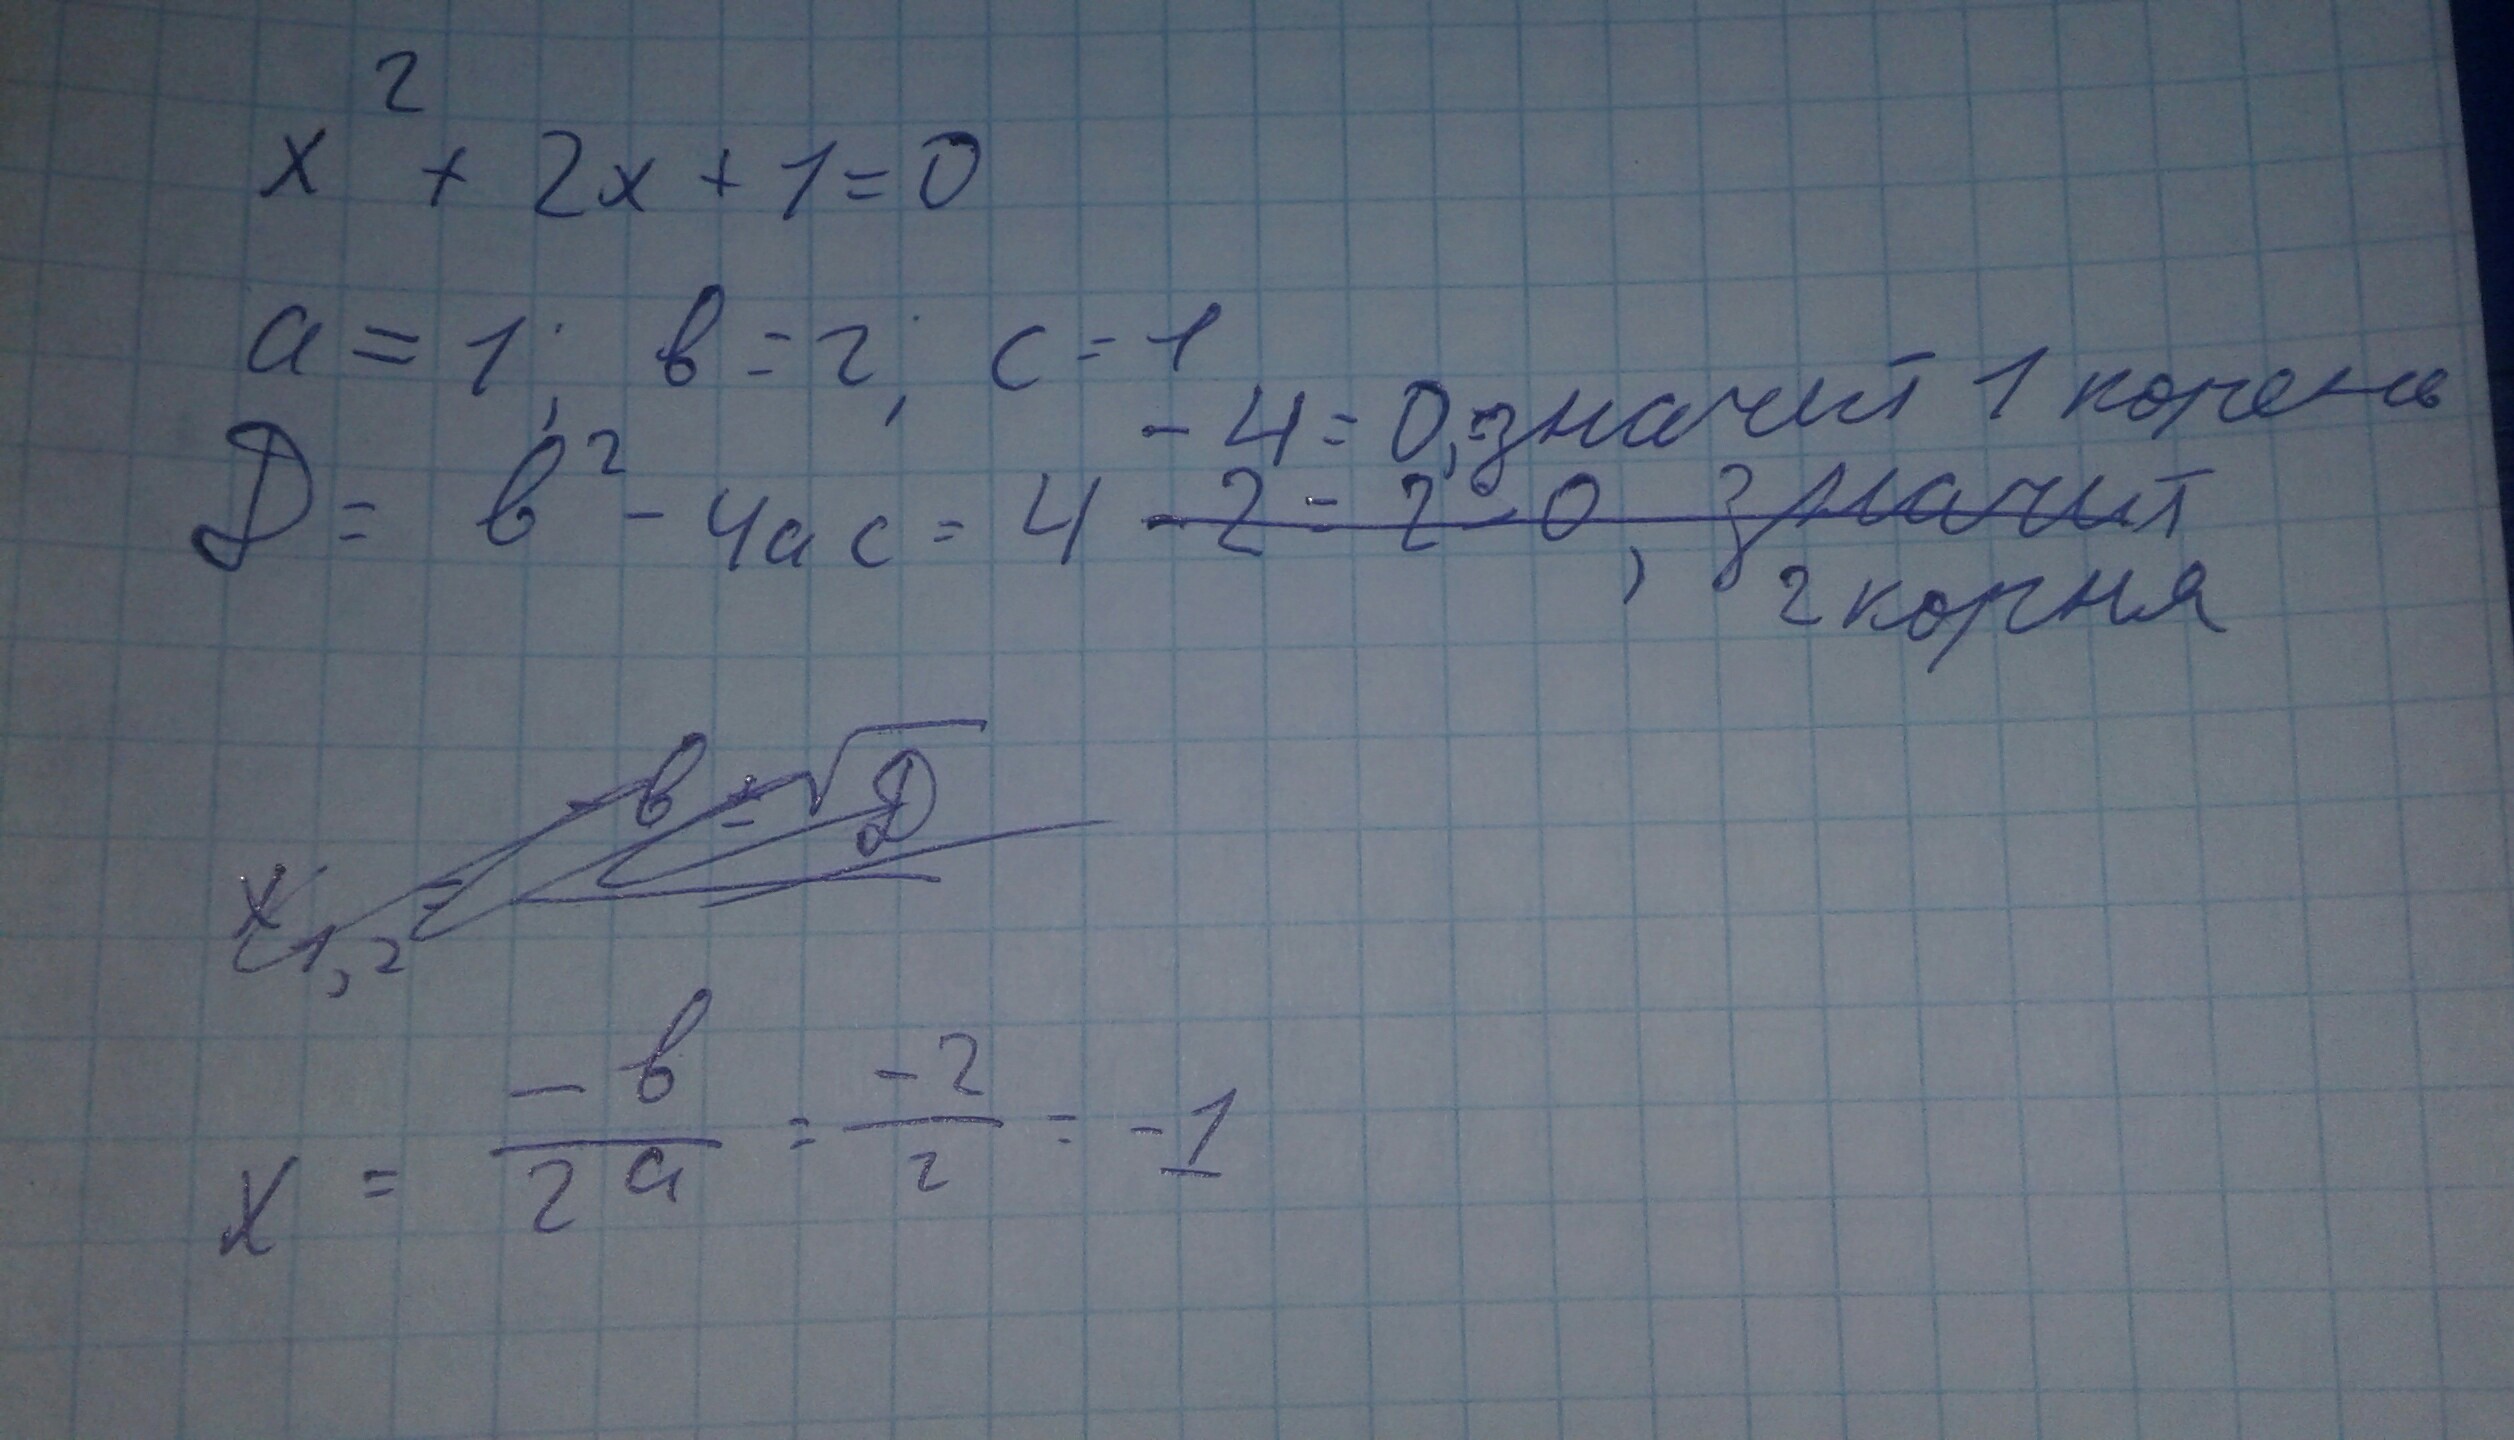 x² + 2x + 1 = 0
a = 1; в = 2; c = 1
- 4 = 0, значит 1 корень
Д = в² - 4ac = 4 - 2 = 2 0, значит
2 корня
-в ± √Д
x1,2 =
x = -в/2a = -2/2 = -1